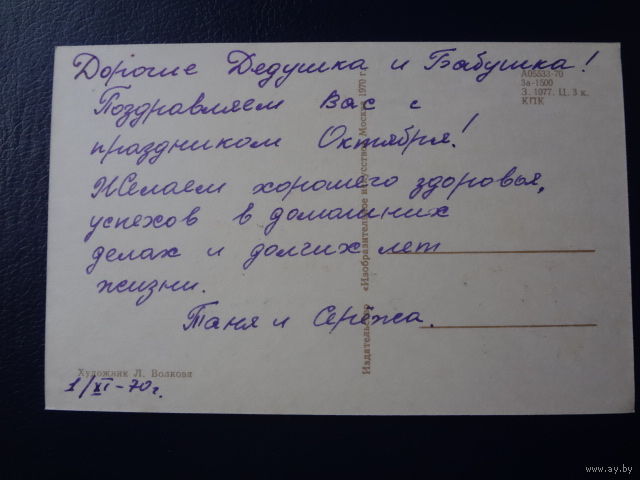 Дорогие Дедушка и Бабушка!
Поздравляем Вас с
праздником Октября!
Желаем хорошего здоровья,
успехов в домашних
делах и долгих лет
жизни.
Таня и Сережа.
1/XI-70г.
Художник Л. Волкова
Издательство «Изобразительное искусство». Москва. 1970 г.
А05333-70
За-1500
З. 1077. Ц. 3 к.
КПК
www.ay.by